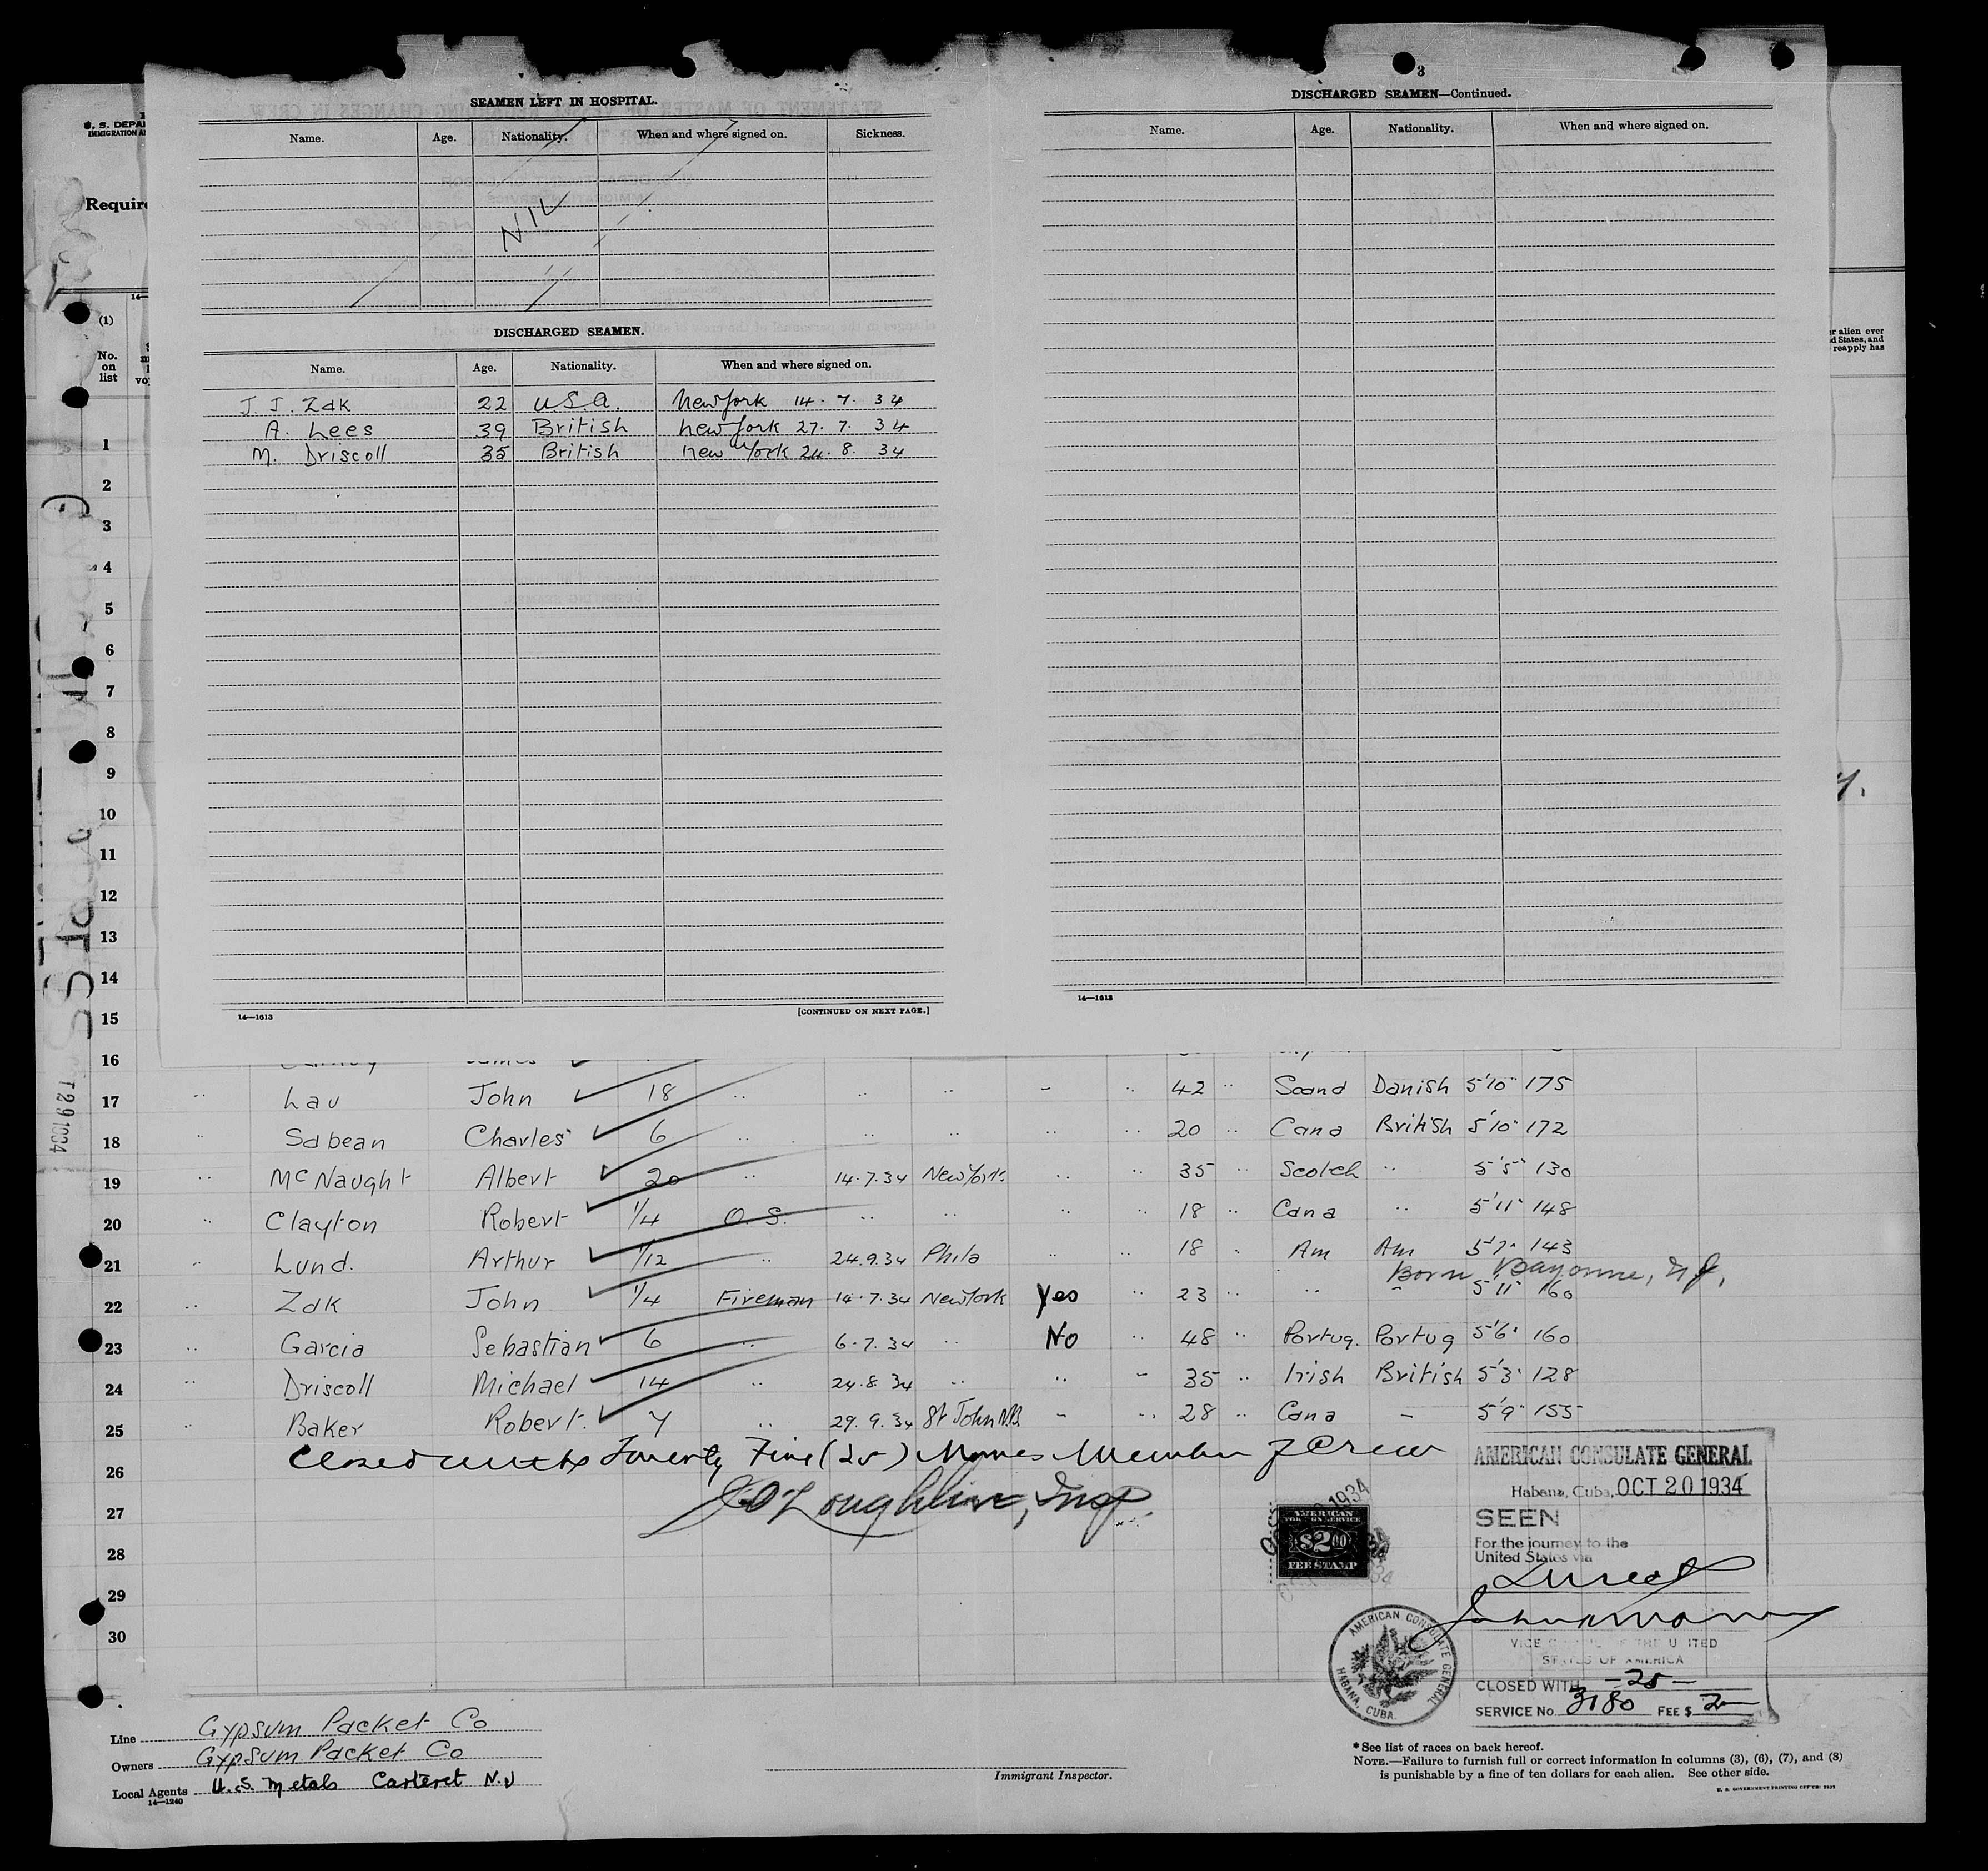 3
SEAMEN LEFT IN HOSPITAL.
Name. Age. Nationality. When and where signed on. Sickness.
NIL
DISCHARGED SEAMEN.
Name. Age. Nationality. When and where signed on.
J. J. Zak 22 U.S.A. New York 14. 7. 34
A. Lees 39 British New York 27. 7. 34
M. Driscoll 35 British New York 24. 8. 34
14—1613 [CONTINUED ON NEXT PAGE.]
DISCHARGED SEAMEN—Continued.
Name. Age. Nationality. When and where signed on.
14—1613
U. S. DEPA
IMMIGRATION A
Require
14—
(1)
No. on list
r alien ever
d States, and
reapply has
1
2
3
4
5
6
7
8
9
10
11
12
13
14
15
16 James
17 " Lau John 18 " " " - " 42 " Scand Danish 5'10" 175
18 " Sabean Charles 6 " " " " " 20 " Cana British 5'10" 172
19 " McNaught Albert 20 " 14.7.34 New York " " 35 " Scotch " 5'5" 130
20 " Clayton Robert 1/4 O.S. " " " " 18 " Cana " 5'11" 148
21 " Lund. Arthur 1/12 " 24.9.34 Phila " " 18 " Am Am 5'7" 143
Born Bayonne, N.J.
22 " Zak John 1/4 Fireman 14.7.34 New York Yes " 23 " " " 5'11" 160
23 " Garcia Sebastian 6 " 6.7.34 " No " 48 " Portug. Portug 5'6" 160
24 " Driscoll Michael 14 " 24.8.34 " " - 35 " Irish British 5'3" 128
25 " Baker Robert. 7 " 29.9.34 St John N.B. - " 28 " Cana - 5'9" 155
Closed with Twenty Five (25) Names Member of Crew
26
J O'Loughlin, Insp.
27
28
29
30
T 29 1934
AMERICAN CONSULATE GENERAL
Habana, Cuba, OCT 20 1934
SEEN
For the journey to the
United States via
Direct
VICE CONSUL OF THE UNITED
STATES OF AMERICA
CLOSED WITH -25-
SERVICE No. 3180 FEE $ 2—
AMERICAN
FOREIGN SERVICE
$2.00
FEE STAMP
AMERICAN CONSULATE GENERAL
HABANA, CUBA.
Line Gypsum Packet Co
Owners Gypsum Packet Co
Local Agents U.S. Metals Carteret N.J
14—1240
Immigrant Inspector.
*See list of races on back hereof.
NOTE.—Failure to furnish full or correct information in columns (3), (6), (7), and (8)
is punishable by a fine of ten dollars for each alien. See other side.
U. S. GOVERNMENT PRINTING OFFICE